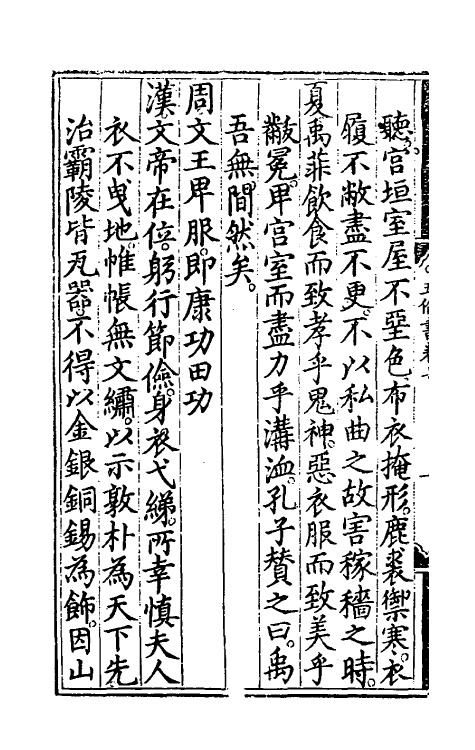 聽宮垣室屋不堊色布衣掩形鹿裘禦寒衣
履不敝盡不更不以私曲之故害稼穡之時
夏禹菲飲食而致孝乎鬼神惡衣服而致美乎
黻冕卑宮室而盡力乎溝洫孔子贊之曰禹
吾無間然矣
周文王卑服即康功田功
漢文帝在位躬行節儉身衣弋綈所幸慎夫人
衣不曳地帷帳無文繡以示敦朴為天下先
治霸陵皆瓦器不得以金銀銅錫為飾因山